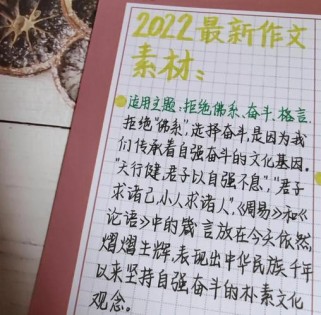 2022最新作文
素材:
适用主题:拒绝佛系、奋斗、格言.
拒绝“佛系”,选择奋斗,是因为我
们传承着自强奋斗的文化基因.
“天行健,君子以自强不息”,“君子
求诸己,小人求诸人”,《周易》和《
论语》中的箴言放在今天依然
熠熠生辉,表现出中华民族千年
以来坚持自强奋斗的朴素文化
观念.